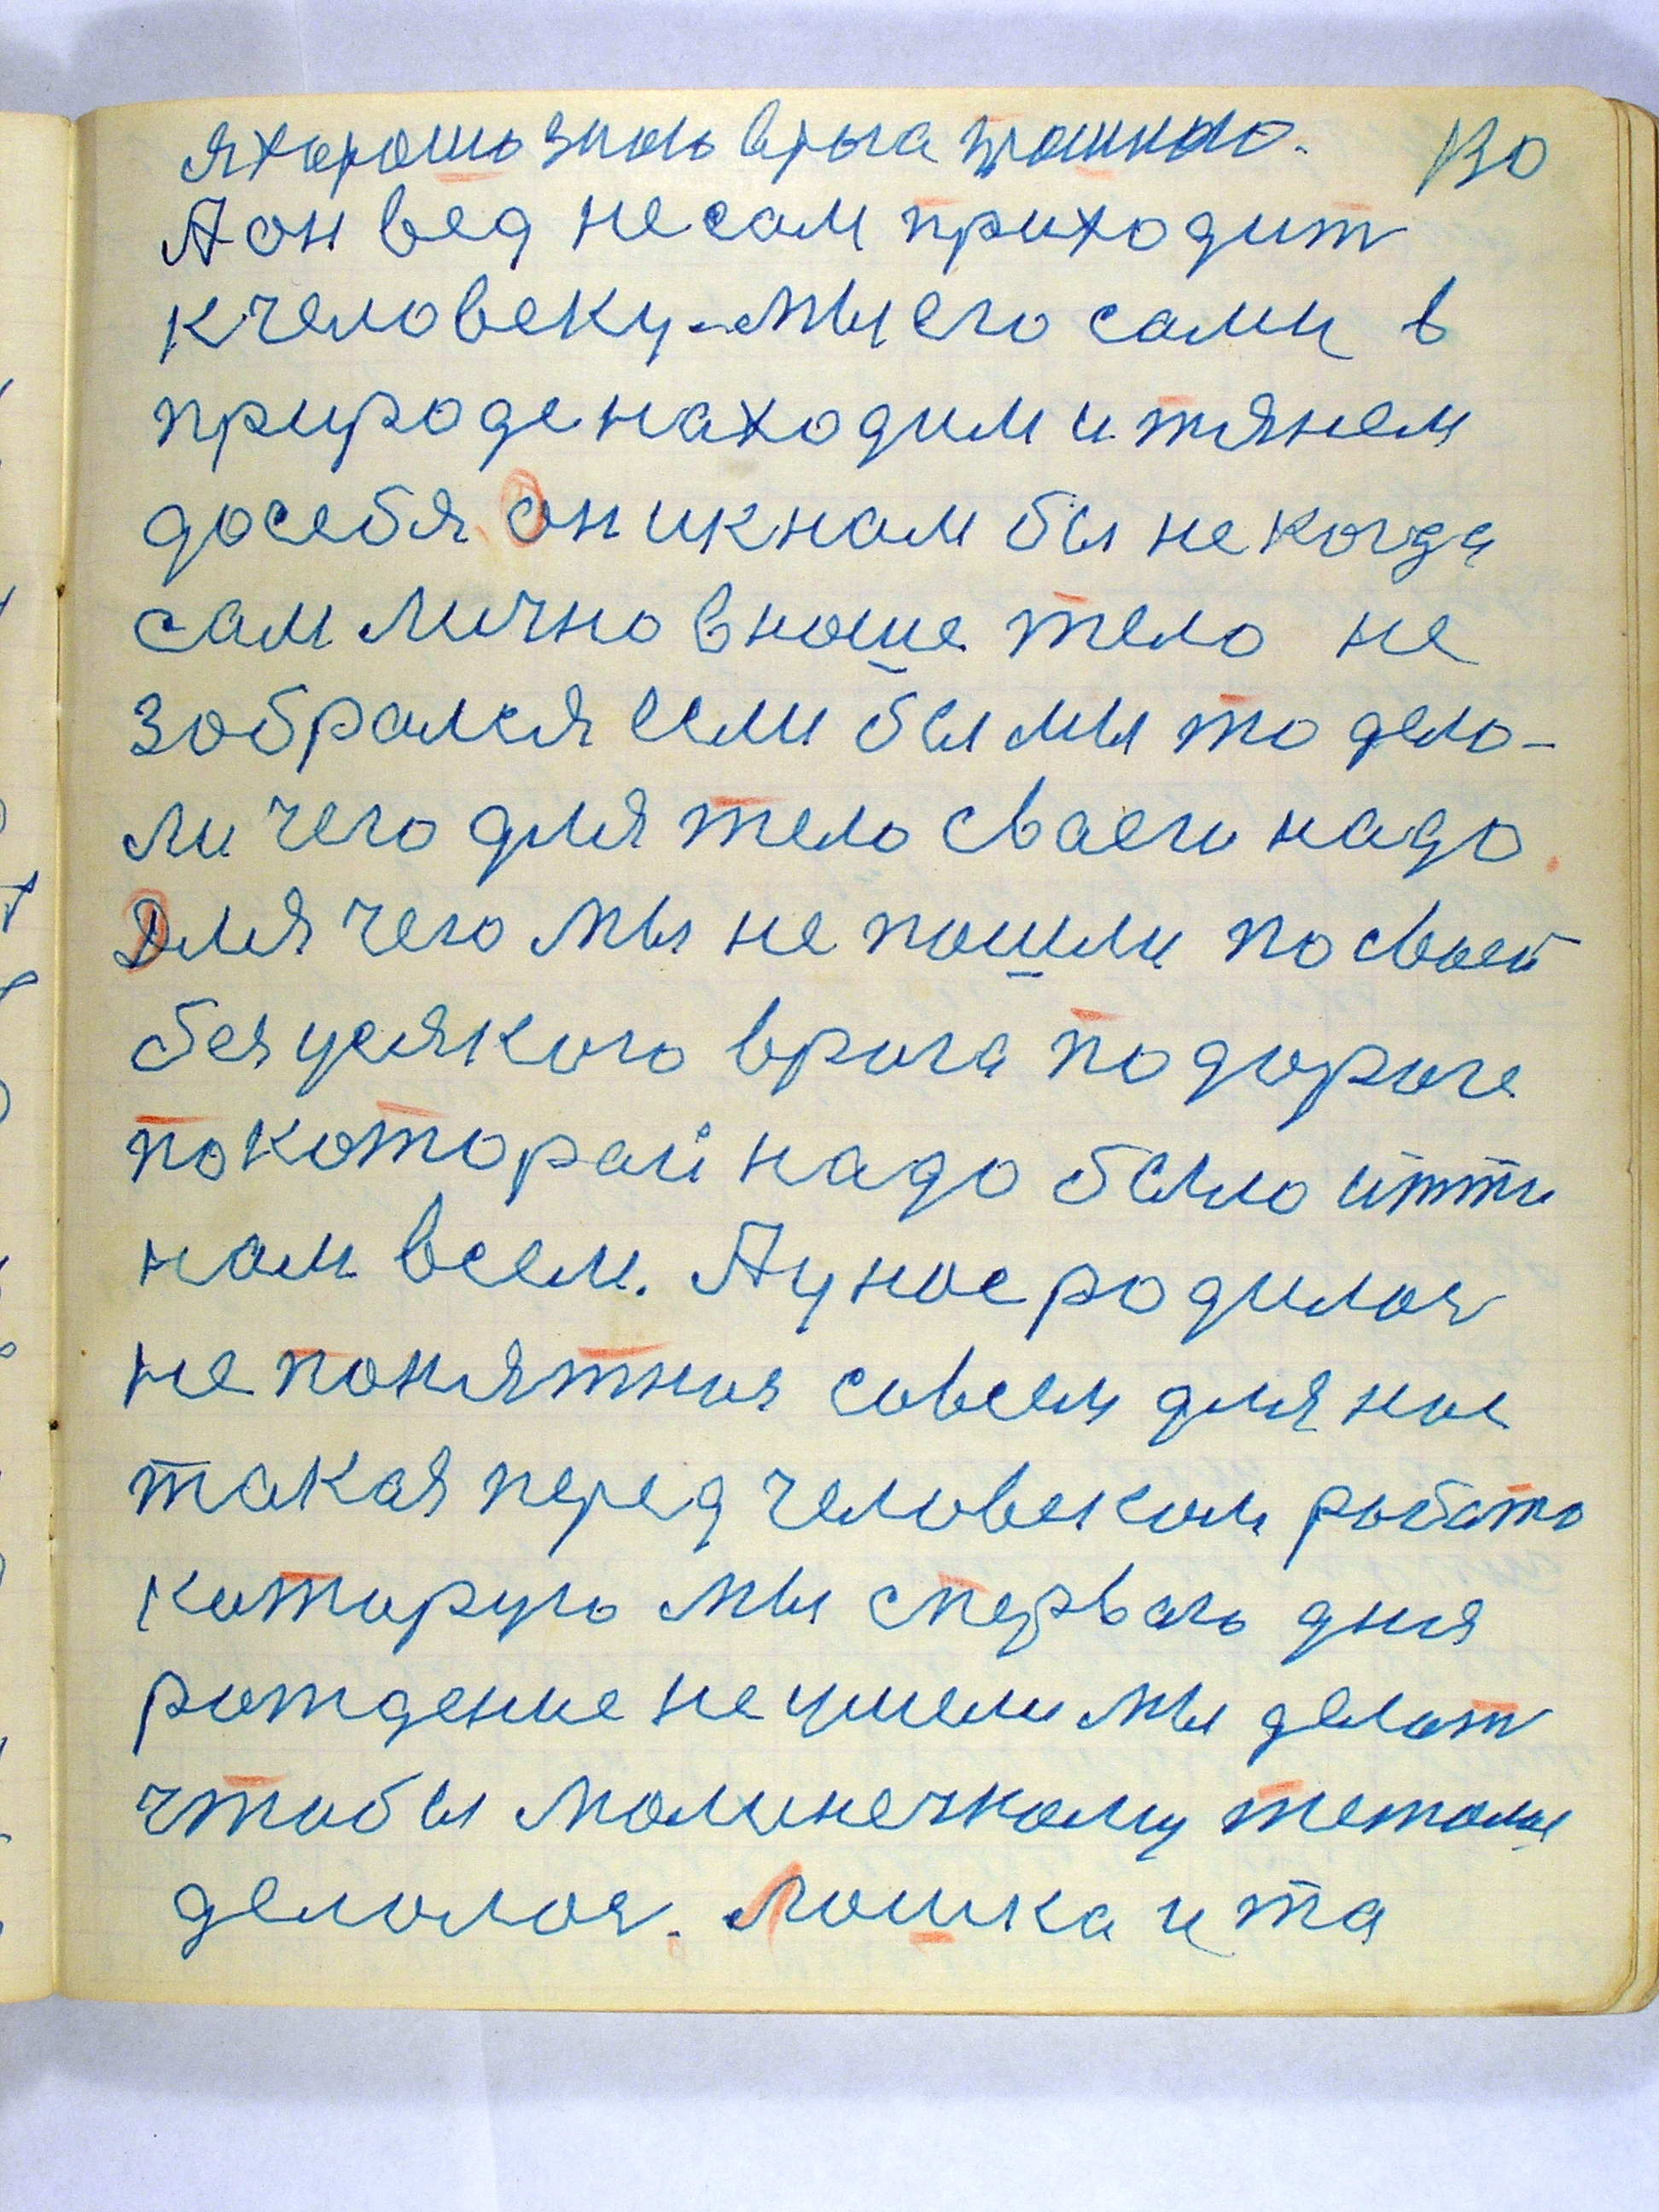 я хорошо знаю врага 130
А он вед не сам приходит
к человеку. Мы его сами в
природе находим и тянем
до себя. Он и к нам бы не когда
сам лично в наше тело не
зобрался если бы мы то дела-
ли чего для тело сваего надо.
Для чего мы не пошли по своей
без усякого врага по дороге
по которай надо было итти
нам всем. А у нас родилося
не понятноя совсем для нас
такая перед человеком работа
которую мы с первого дня
рождение не умели мы делат
чтобы малинечкому
делалося. Ляшка и та